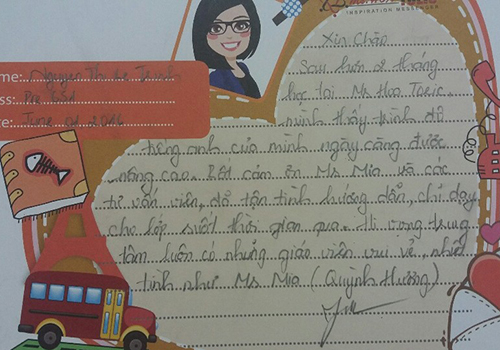 INSPIRATION MESSENGER
Name: Nguyen Thi
Pre
Date: June 2016
Xin Chào
Sau hơn 2 tháng
học tại Ms Hoa Toeic
mình thấy trình độ
tiếng anh của mình ngày càng được
nâng cao. Rất cảm ơn Ms Mia và các
tư vấn viên, đã tận tình hướng dẫn, chỉ dạy
cho lớp suốt thời gian qua. Hi vọng trung
tâm luôn có những giáo viên vui vẻ, nhiệt
tình như Ms Mia (Quỳnh Hương)